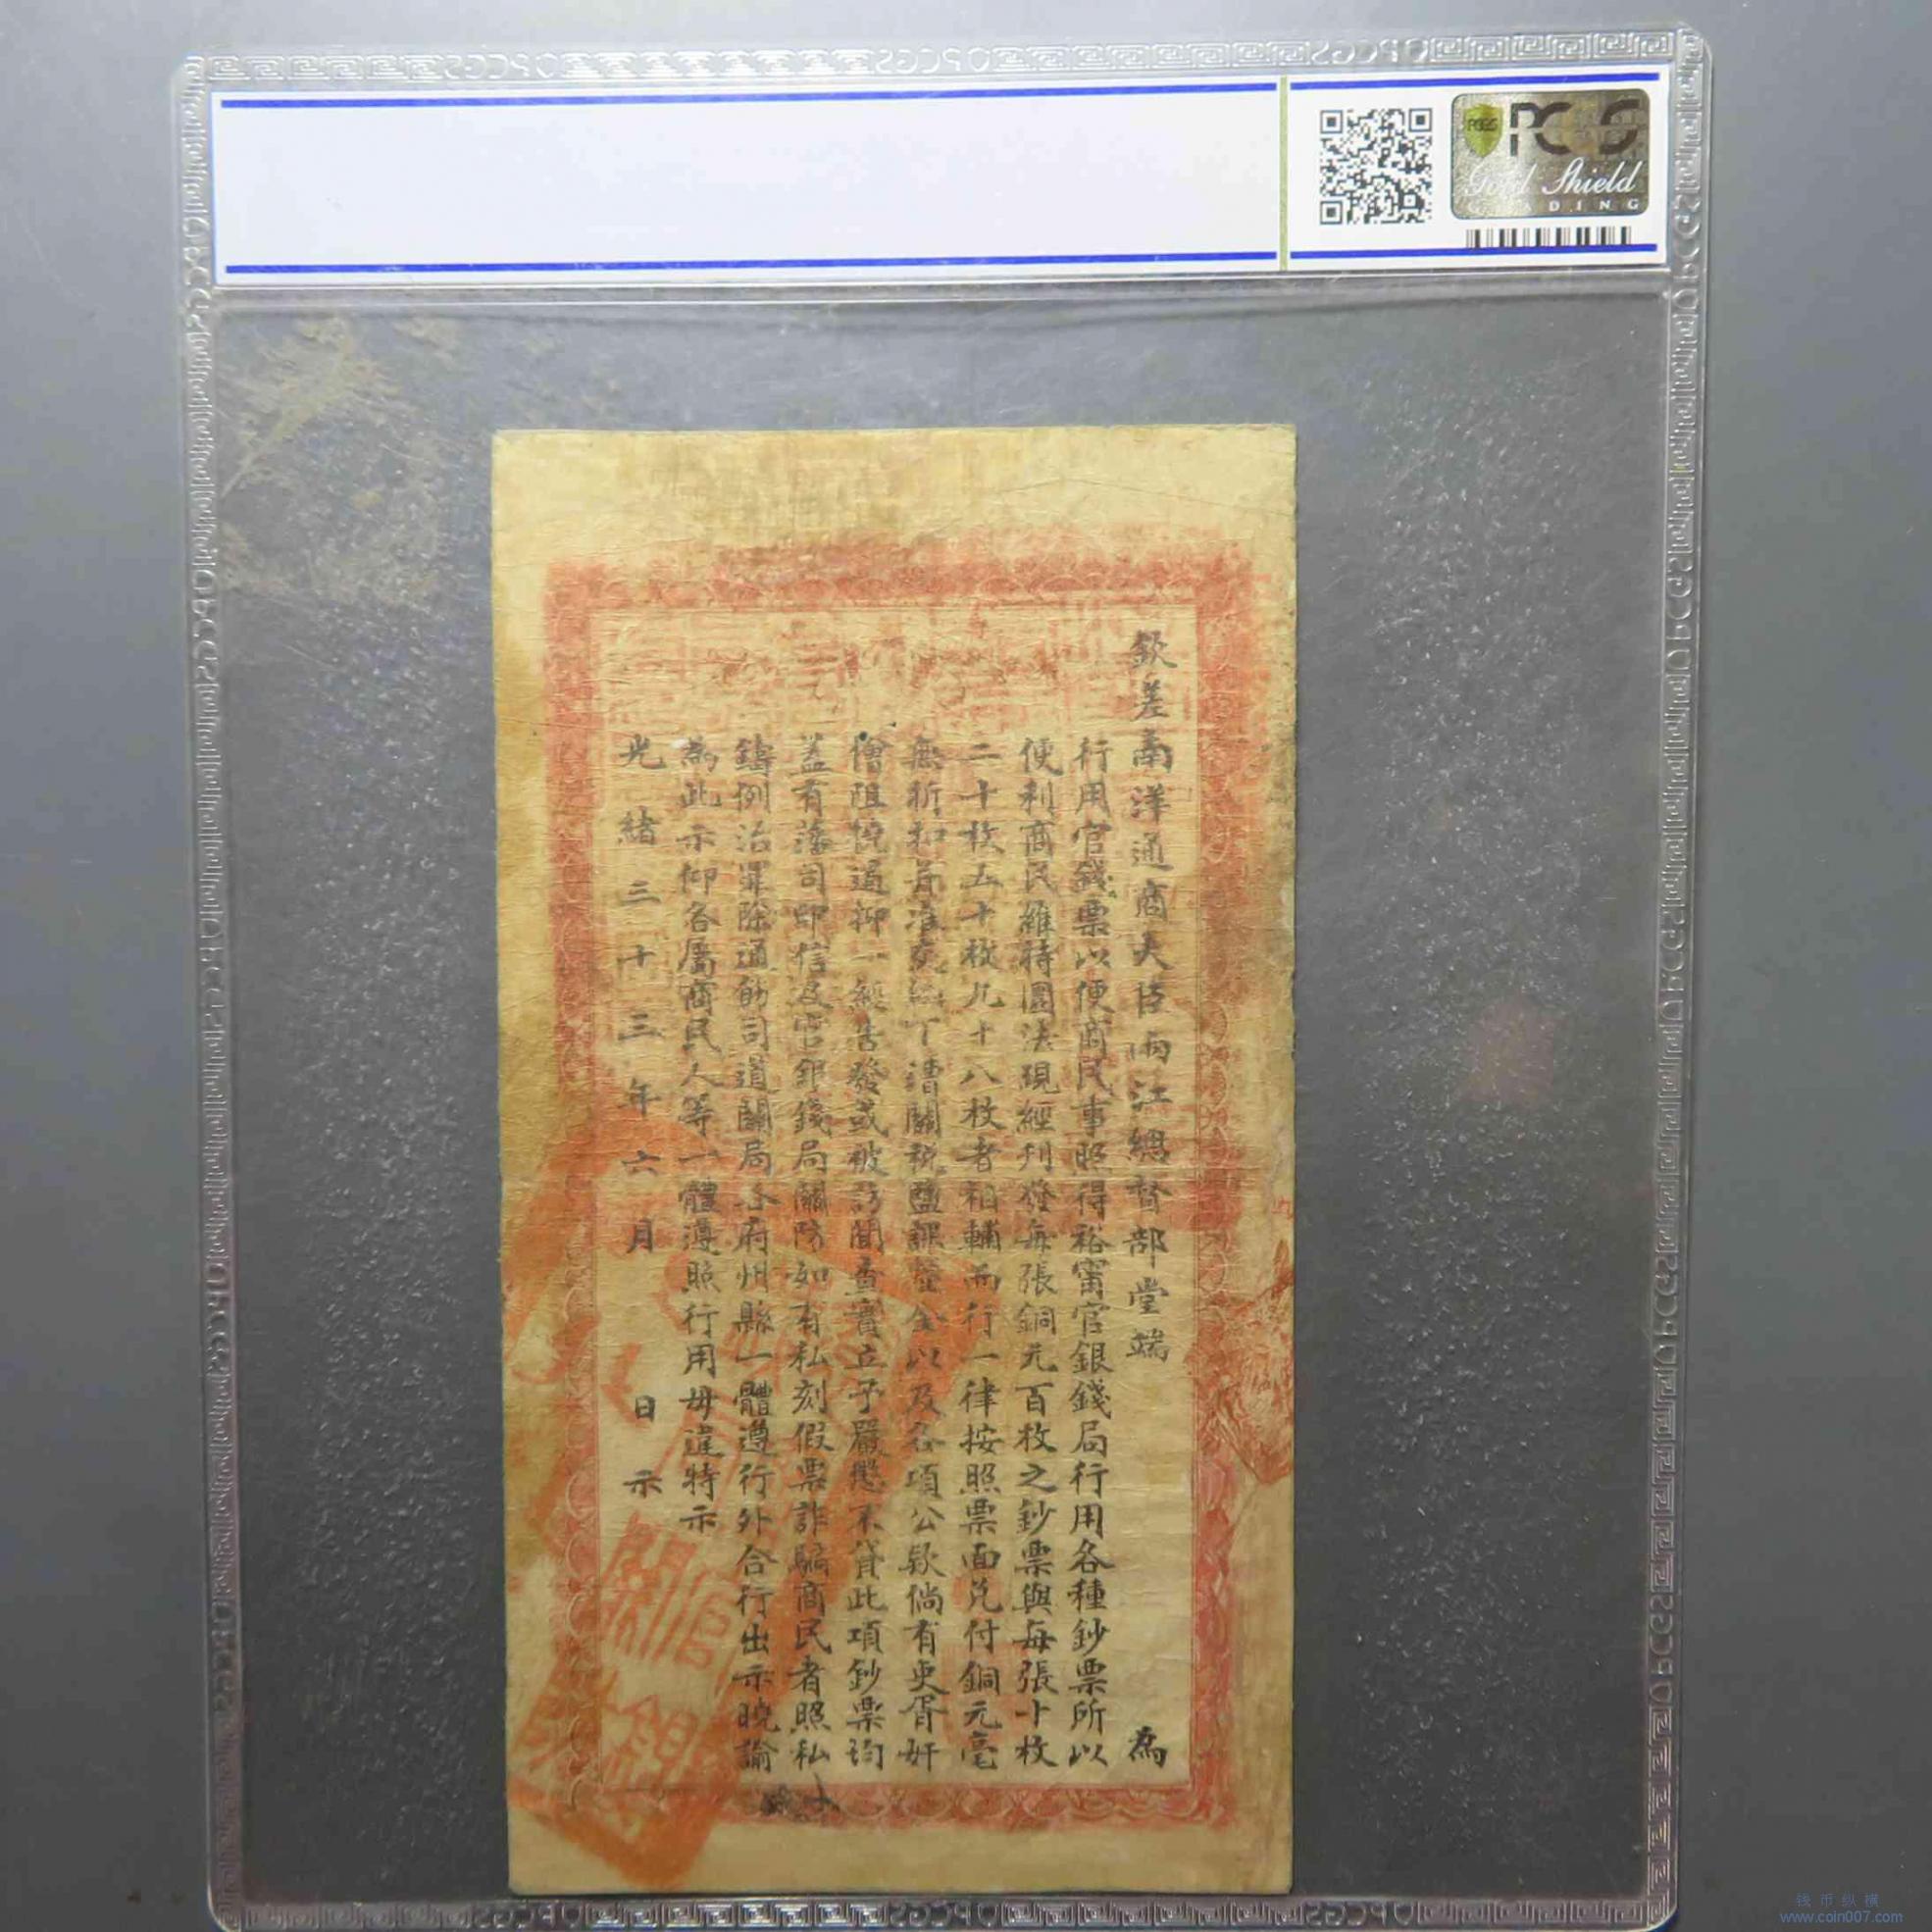 PCGS
Gold Shield
GRADING
欽差南洋通商大臣兩江總督部堂端 為
行用官錢票以便商民事照得裕甯官銀錢局行用各種鈔票所以
便利商民維持圜法現經刊發每張銅元百枚之鈔票與每張十枚
二十枚五十枚九十八枚者相輔而行一律按照票面兌付銅元毫
無折扣并准完納丁漕關稅鹽課釐金以及各項公款倘有吏胥奸
儈阻撓遏抑一經告發或被訪聞查實立予嚴懲不貸此項鈔票均
蓋有藩司印信及官銀錢局關防如有私刻假票詐騙商民者照私
鑄例治罪除通飭司道關局各府州縣一體遵行外合行出示曉諭
為此示仰各屬商民人等一體遵照行用毋違特示
光緒三十三年六月 日示
钱币纵横
www.coin007.com